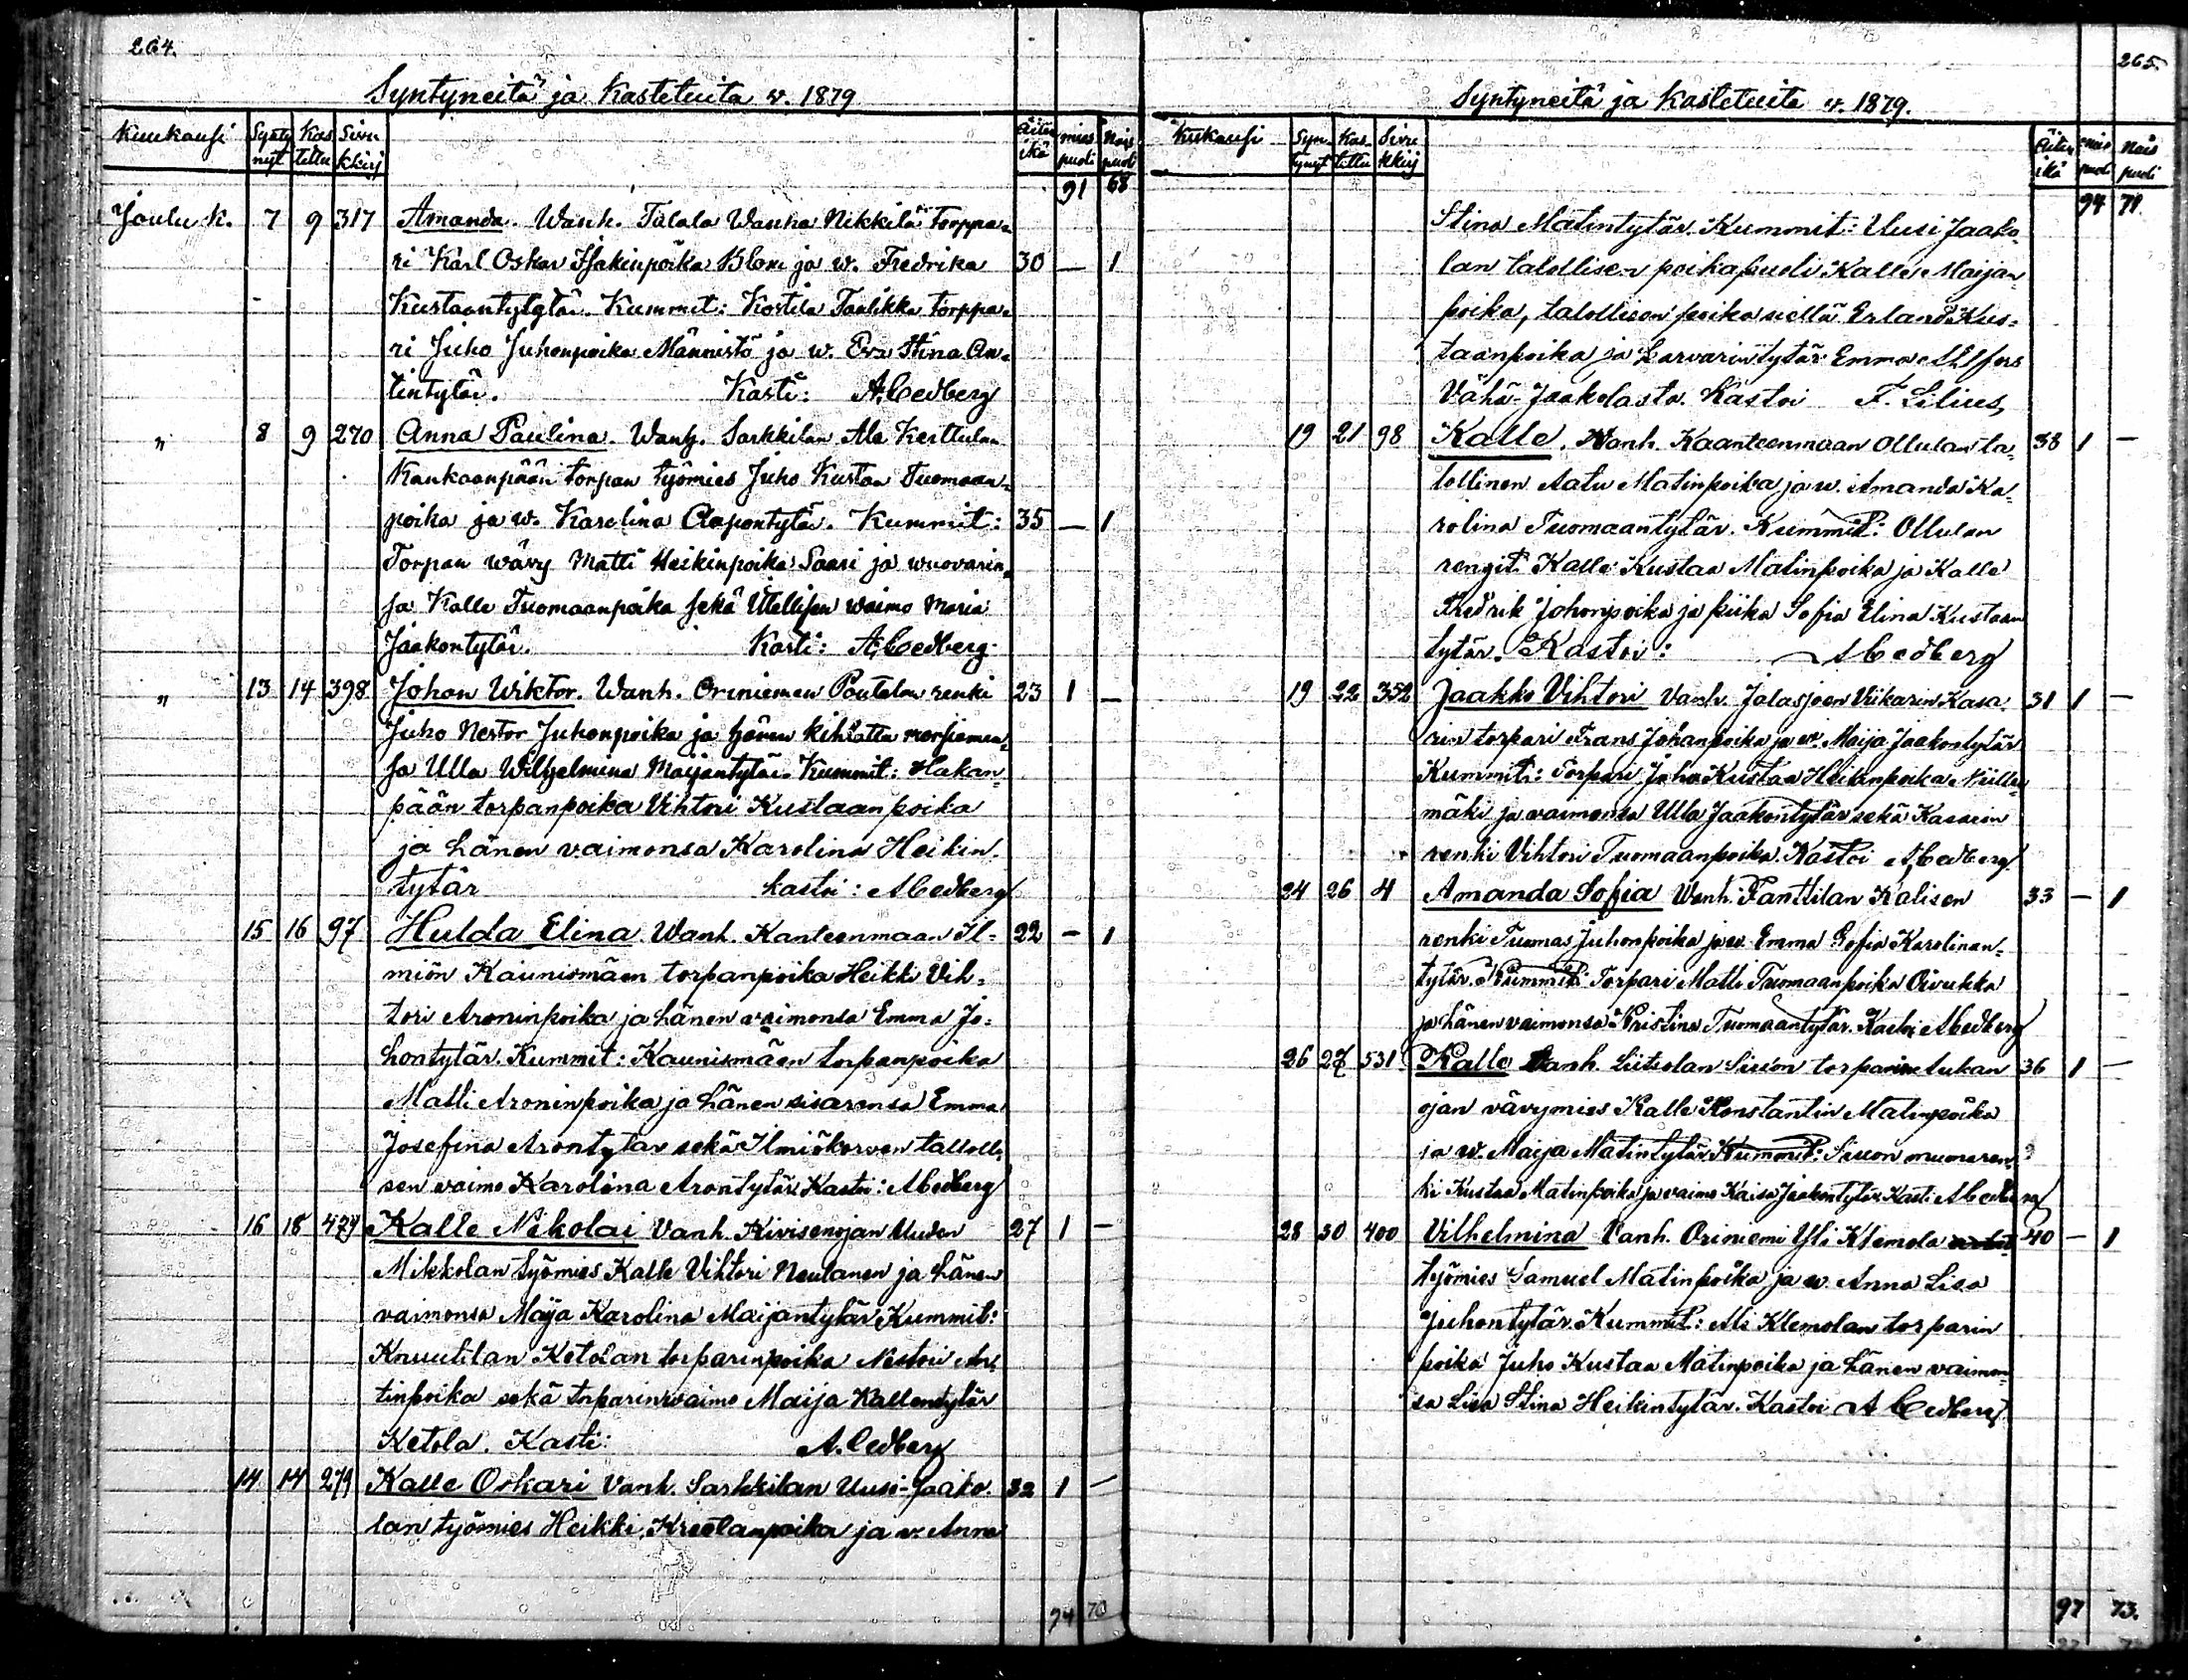 264.
Syntyneitä ja Kastetuita w. 1879
Kuukausi Synty nyt Kas tettu Sivu kkirj Äitin ikä mies puoli Nais puoli
91 68
Joulu k. 7 9 317 Amanda. Wanh. Talala Wanha Nikkilä torppa-
ri Karl Oskar Isakinpoika Blom ja w. Fredrika 30 — 1
Kustaantytytär. Kummit: Kostila Taalikka torppa-
ri Juho Juhonpoika Männistö ja w. Eva Stina An-
tintytär. Kasti: A. Cedberg
" 8 9 270 Anna Paulina. Wanh. Sarkkilan Ala Kerttulan
Kankaanpään torpan työmies Juho Kustaa Tuomaan-
poika ja w. Karolina Aapontytär. Kummit: 35 — 1
Torpan wävy Matti Heikinpoika Saari ja wuovarin-
sa Kalle Tuomaanpoika sekä Itellisen waimo Maria
Jaakontytär. Kasti: A. Cedberg
" 13 14 398 Johan Wiktor. Wanh. Oriniemen Poutalan renki 23 1 —
Juho Nestor Juhonpoika ja hänen kihlattu morsiamen-
sa Ulla Wilhelmina Maijantytär. Kummit: Hakan-
pään torpanpoika Vihtori Kustaanpoika
ja hänen vaimonsa Karolina Heikin-
tytär kastoi: A Cedberg
15 16 97 Hulda Elina Wanh. Kanteenmaan Il- 22 — 1
miön Kaunismäen torpanpoika Heikki Vih-
tori Aroninpoika ja hänen vaimonsa Emma Jo-
hontytär. Kummit: Kaunismäen torpanpoika
Matti Aroninpoika ja hänen sisarensa Emma
Josefina Arontytär sekä Ilmiökorven tallolli-
sen vaimo Karolina Arontytär Kastoi: A Cedberg
16 18 474 Kalle Nikolai Vanh. Kivisenojan Uuden 27 1 —
Mikkolan työmies Kalle Vihtori Neulanen ja hänen
vaimonsa Maija Karolina Maijantytär Kummit:
Knuutilan Ketolan torparinpoika Nestori An-
tinpoika sekä torparinvaimo Maija Kallentytär
Ketola. Kasti: A. Cedberg
14 14 279 Kalle Oskari Vanh. Sarkkilan Uusi-Jaako- 32 1 —
lan työmies Heikki Kustaanpoika ja v. Anna
94 70
265.
Syntyneitä ja Kastetuita w. 1879.
Kukausi Syn- tynyt Kas- tettu Sivu kkirj Äitin ikä mies puoli Nais puoli
94 71
Stina Matintytär. Kummit: Uusi Jaako-
lan talollisen poikapuoli Kalle Maijan-
poika, talollisen poika siellä Erland Kus-
taanpoika ja Larvarin tytär Emma Ahlfors
Vähä-Jaakolasta. Kastoi F. Lilius,
19 21 98 Kalle. Wanh. Kaanteenmaan Ollulan ta- 38 1 —
lollinen Aatu Matinpoika ja w. Amanda Ka-
rolina Tuomaantytär. Kummit: Ollulan
rengit Kalle Kustaa Matinpoika ja Kalle
Fredrik Johonpoika ja piika Sofia Elina Kustaan
tytär. Kastoi: A Cedberg
19 22 352 Jaakko Vihtori Vanh. Jalasjoen Viikarin Kasa- 31 1 —
rin torpari Frans Johanpoika ja w. Maija Jaakontytär
Kummit: Torpari Juho Kustaa Heikinpoika Niille-
mäki ja vaimonsa Ulla Jaakontytär sekä Kasarin
renki Vihtori Tuomaanpoika. Kastoi A. Cedberg
24 26 4 Amanda Sofia Wanh. Fanttilan Kalisen 33 — 1
renki Tuomas Juhonpoika ja w. Emma Sofia Karolinan-
tytär. Kummit: Torpari Matti Tuomaanpoika Oivukka
ja hänen vaimonsa Kristina Tuomaantytär. Kastoi A Cedberg
26 27 531 Kalle Vanh. Liitsolan Siuon torparin Lukan 36 1 —
ojan vävymies Kalle Konstantin Matinpoika
ja w. Maija Matintytär Kummit: Siuon muonaren-
ki Kustaa Matinpoika ja vaimo Kaisa Jaakontytär Kasti A Cedberg
28 30 400 Vilhelmina Vanh. Oriniemi Yli Klemola 40 — 1
työmies Samuel Matinpoika ja w. Anna Lisa
Juhontytär. Kummit: Ali Klemolan torparin
poika Juho Kustaa Matinpoika ja hänen vaimon-
sa Lisa Stina Heikintytär. Kastoi A Cedberg
97 73.